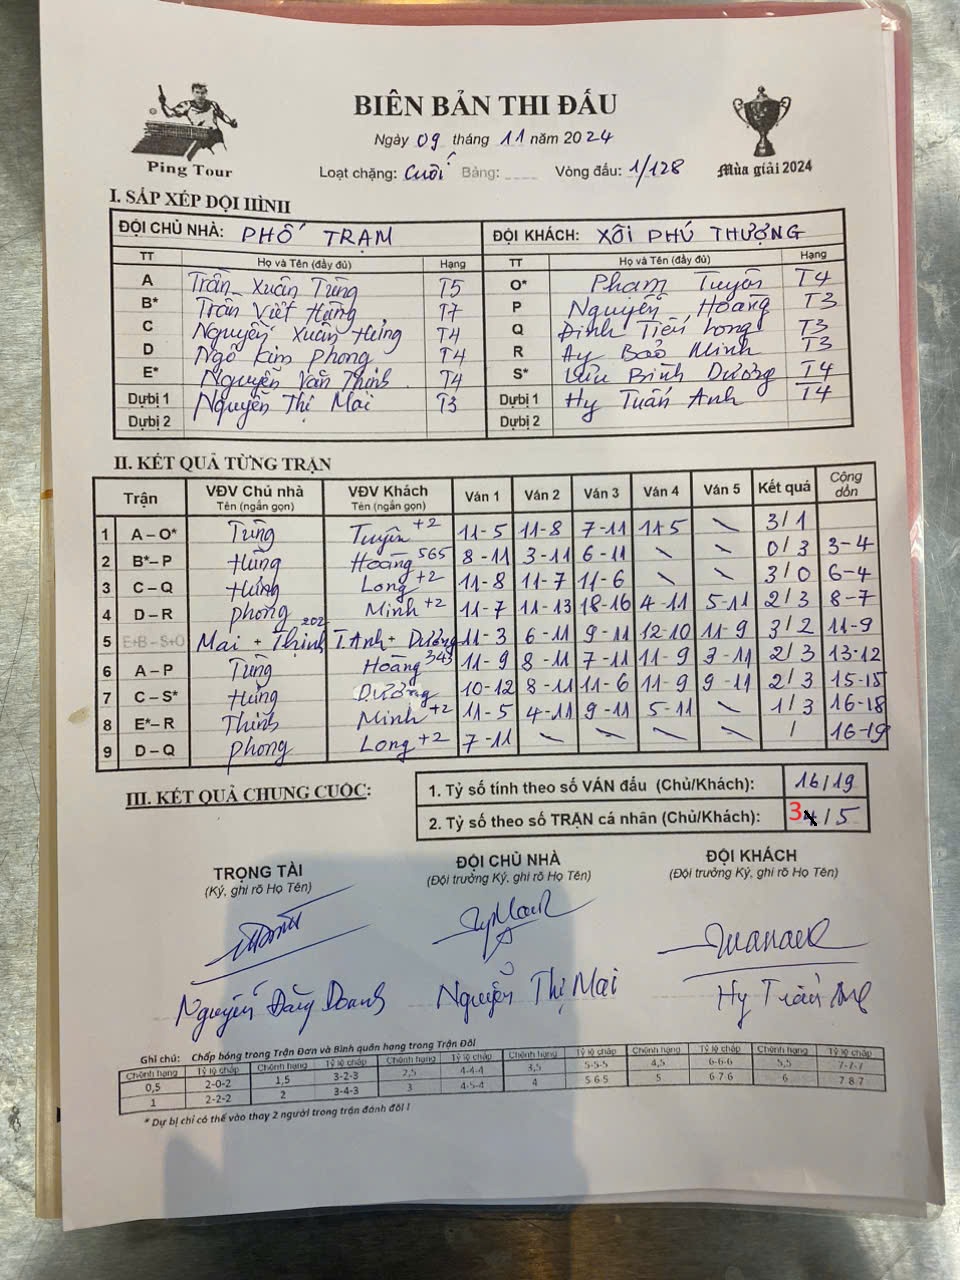 BIÊN BẢN THI ĐẤU
Ngày 09 tháng 11 năm 2024
Ping Tour
Loạt chặng: Cuối Bảng: ____ Vòng đấu: 1/128
Mùa giải 2024
I. SẮP XẾP ĐỘI HÌNH
ĐỘI CHỦ NHÀ: PHỐ TRẠM ĐỘI KHÁCH: XÔI PHÚ THƯỢNG
TT Họ và Tên (đầy đủ) Hạng TT Họ và Tên (đầy đủ) Hạng
A Trần Xuân Tùng T5 O* Phạm Tuyên T4
B* Trần Viết Hùng T7 P Nguyễn Hoàng T3
C Nguyễn Xuân Hưng T4 Q Đinh Tiến Long T3
D Ngô Kim Phong T4 R Ay Bảo Minh T3
E* Nguyễn Văn Thịnh T4 S* Lưu Bình Dương T4
Dự bị 1 Nguyễn Thị Mai T3 Dự bị 1 Hy Tuấn Anh T4
Dự bị 2 Dự bị 2
II. KẾT QUẢ TỪNG TRẬN
Trận VĐV Chủ nhà Tên (ngắn gọn) VĐV Khách Tên (ngắn gọn) Ván 1 Ván 2 Ván 3 Ván 4 Ván 5 Kết quả Cộng dồn
1 A – O* Tùng Tuyên +2 11-5 11-8 7-11 11-5 \ 3/1
2 B* – P Hùng Hoàng 565 8-11 3-11 6-11 \ \ 0/3 3-4
3 C – Q Hưng Long +2 11-8 11-7 11-6 \ \ 3/0 6-4
4 D – R Phong Minh +2 11-7 11-13 18-16 4-11 5-11 2/3 8-7
5 E+B – S+O Mai + Thịnh 202 T.Anh + Dương 11-3 6-11 9-11 12-10 11-9 3/2 11-9
6 A – P Tùng Hoàng 343 11-9 8-11 7-11 11-9 7-11 2/3 13-12
7 C – S* Hưng Dương 10-12 8-11 11-6 11-9 9-11 2/3 15-15
8 E* – R Thịnh Minh +2 11-5 4-11 9-11 5-11 \ 1/3 16-18
9 D – Q Phong Long +2 7-11 \ \ \ \ / 16-19
III. KẾT QUẢ CHUNG CUỘC:
1. Tỷ số tính theo số VÁN đấu (Chủ/Khách): 16/19
2. Tỷ số theo số TRẬN cá nhân (Chủ/Khách): 3 /5
TRỌNG TÀI ĐỘI CHỦ NHÀ ĐỘI KHÁCH
(Ký, ghi rõ Họ Tên) (Đội trưởng Ký, ghi rõ Họ Tên) (Đội trưởng Ký, ghi rõ Họ Tên)
Nguyễn Đăng Doanh Nguyễn Thị Mai Hy Tuấn Anh
Ghi chú: Chấp bóng trong Trận Đơn và Bình quân hạng trong Trận Đôi
Chênh hạng Tỷ lệ chấp Chênh hạng Tỷ lệ chấp Chênh hạng Tỷ lệ chấp Chênh hạng Tỷ lệ chấp Chênh hạng Tỷ lệ chấp Chênh hạng Tỷ lệ chấp
0,5 2-0-2 1,5 3-2-3 2,5 4-4-4 3,5 5-5-5 4,5 6-6-6 5,5 7-7-7
1 2-2-2 2 3-4-3 3 4-5-4 4 5 6 5 5 6 7 6 6 7 8 7
* Dự bị chỉ có thể vào thay 2 người trong trận đánh đôi !